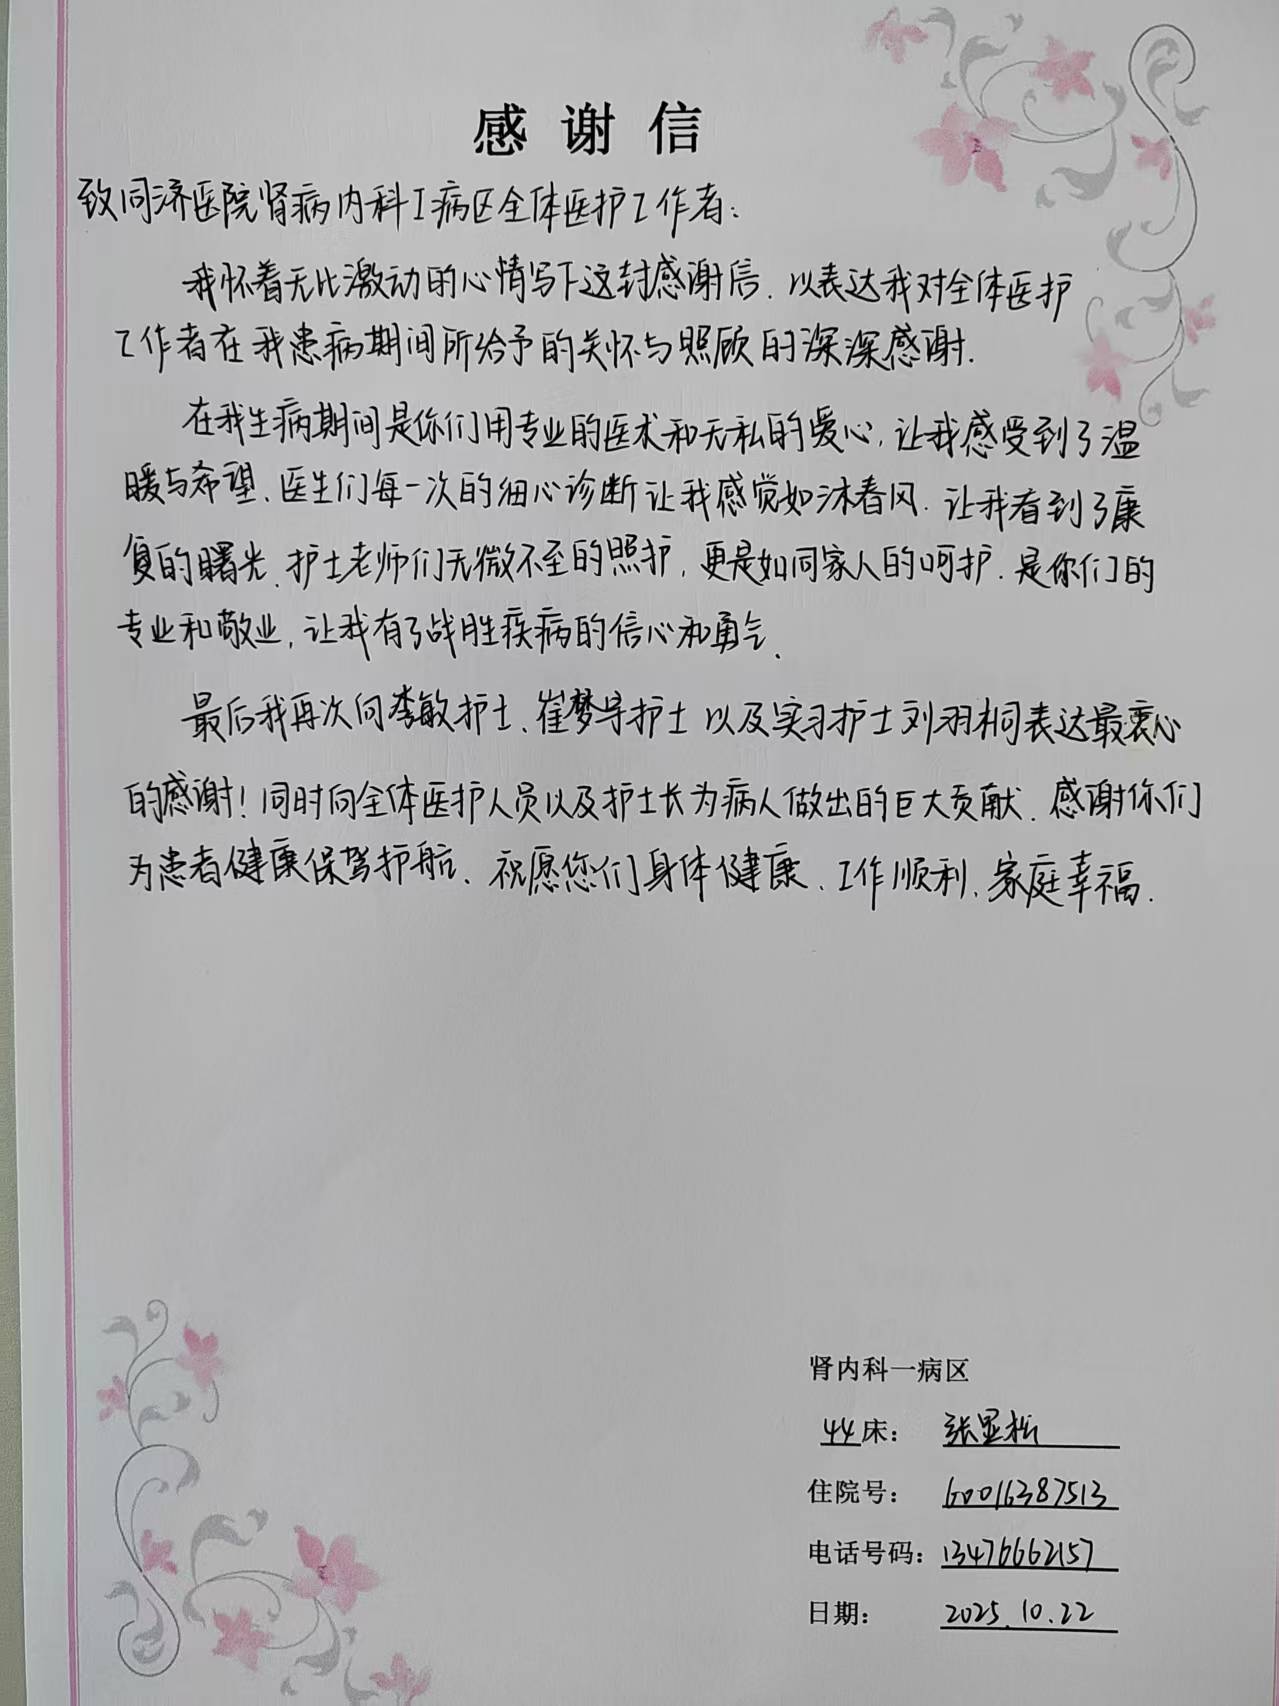 感谢信
致同济医院肾病内科I病区全体医护工作者：
我怀着无比激动的心情写下这封感谢信．以表达我对全体医护
工作者在我患病期间所给予的关怀与照顾的深深感谢．
在我生病期间是你们用专业的医术和无私的爱心，让我感受到了温
暖与希望、医生们每一次的细心诊断让我感觉如沐春风．让我看到了康
复的曙光．护士老师们无微不至的照护，更是如同家人的呵护．是你们的
专业和敬业，让我有了战胜疾病的信心和勇气、
最后我再次向李敏护士、崔梦导护士以及实习护士刘羽桐表达最衷心
的感谢！同时向全体医护人员以及护士长为病人做出的巨大贡献．感谢你们
为患者健康保驾护航、祝愿您们身体健康、工作顺利、家庭幸福．
肾内科一病区
44床：张显松
住院号：60016387513
电话号码：13476662157
日期：2025.10.22